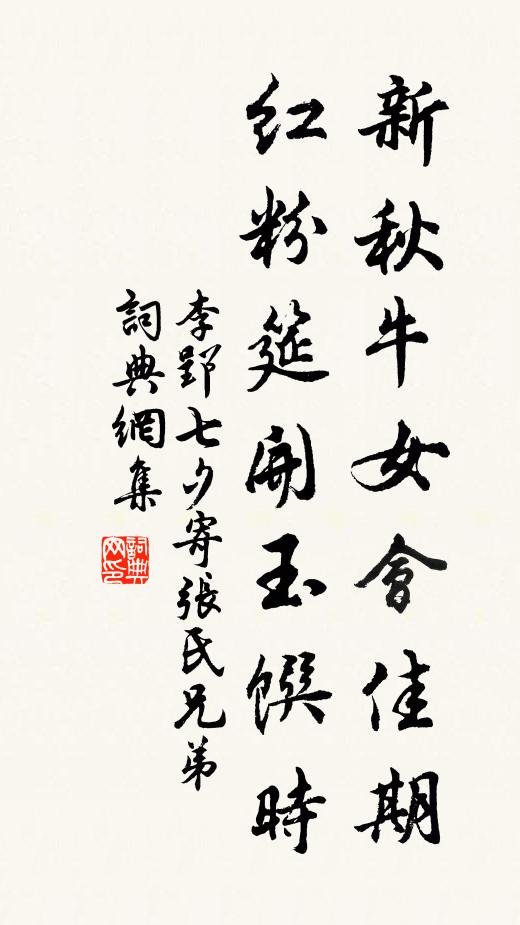 新秋牛女會佳期
紅粉筵開玉饌時
李郢七夕寄張氏兄弟
詞典網集
詞典
网印